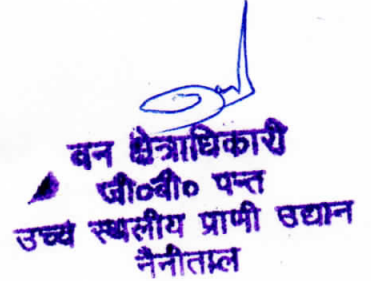 वन क्षेत्राधिकारी
जी०बी० पन्त
उच्च स्थलीय प्राणी उद्यान
नैनीताल